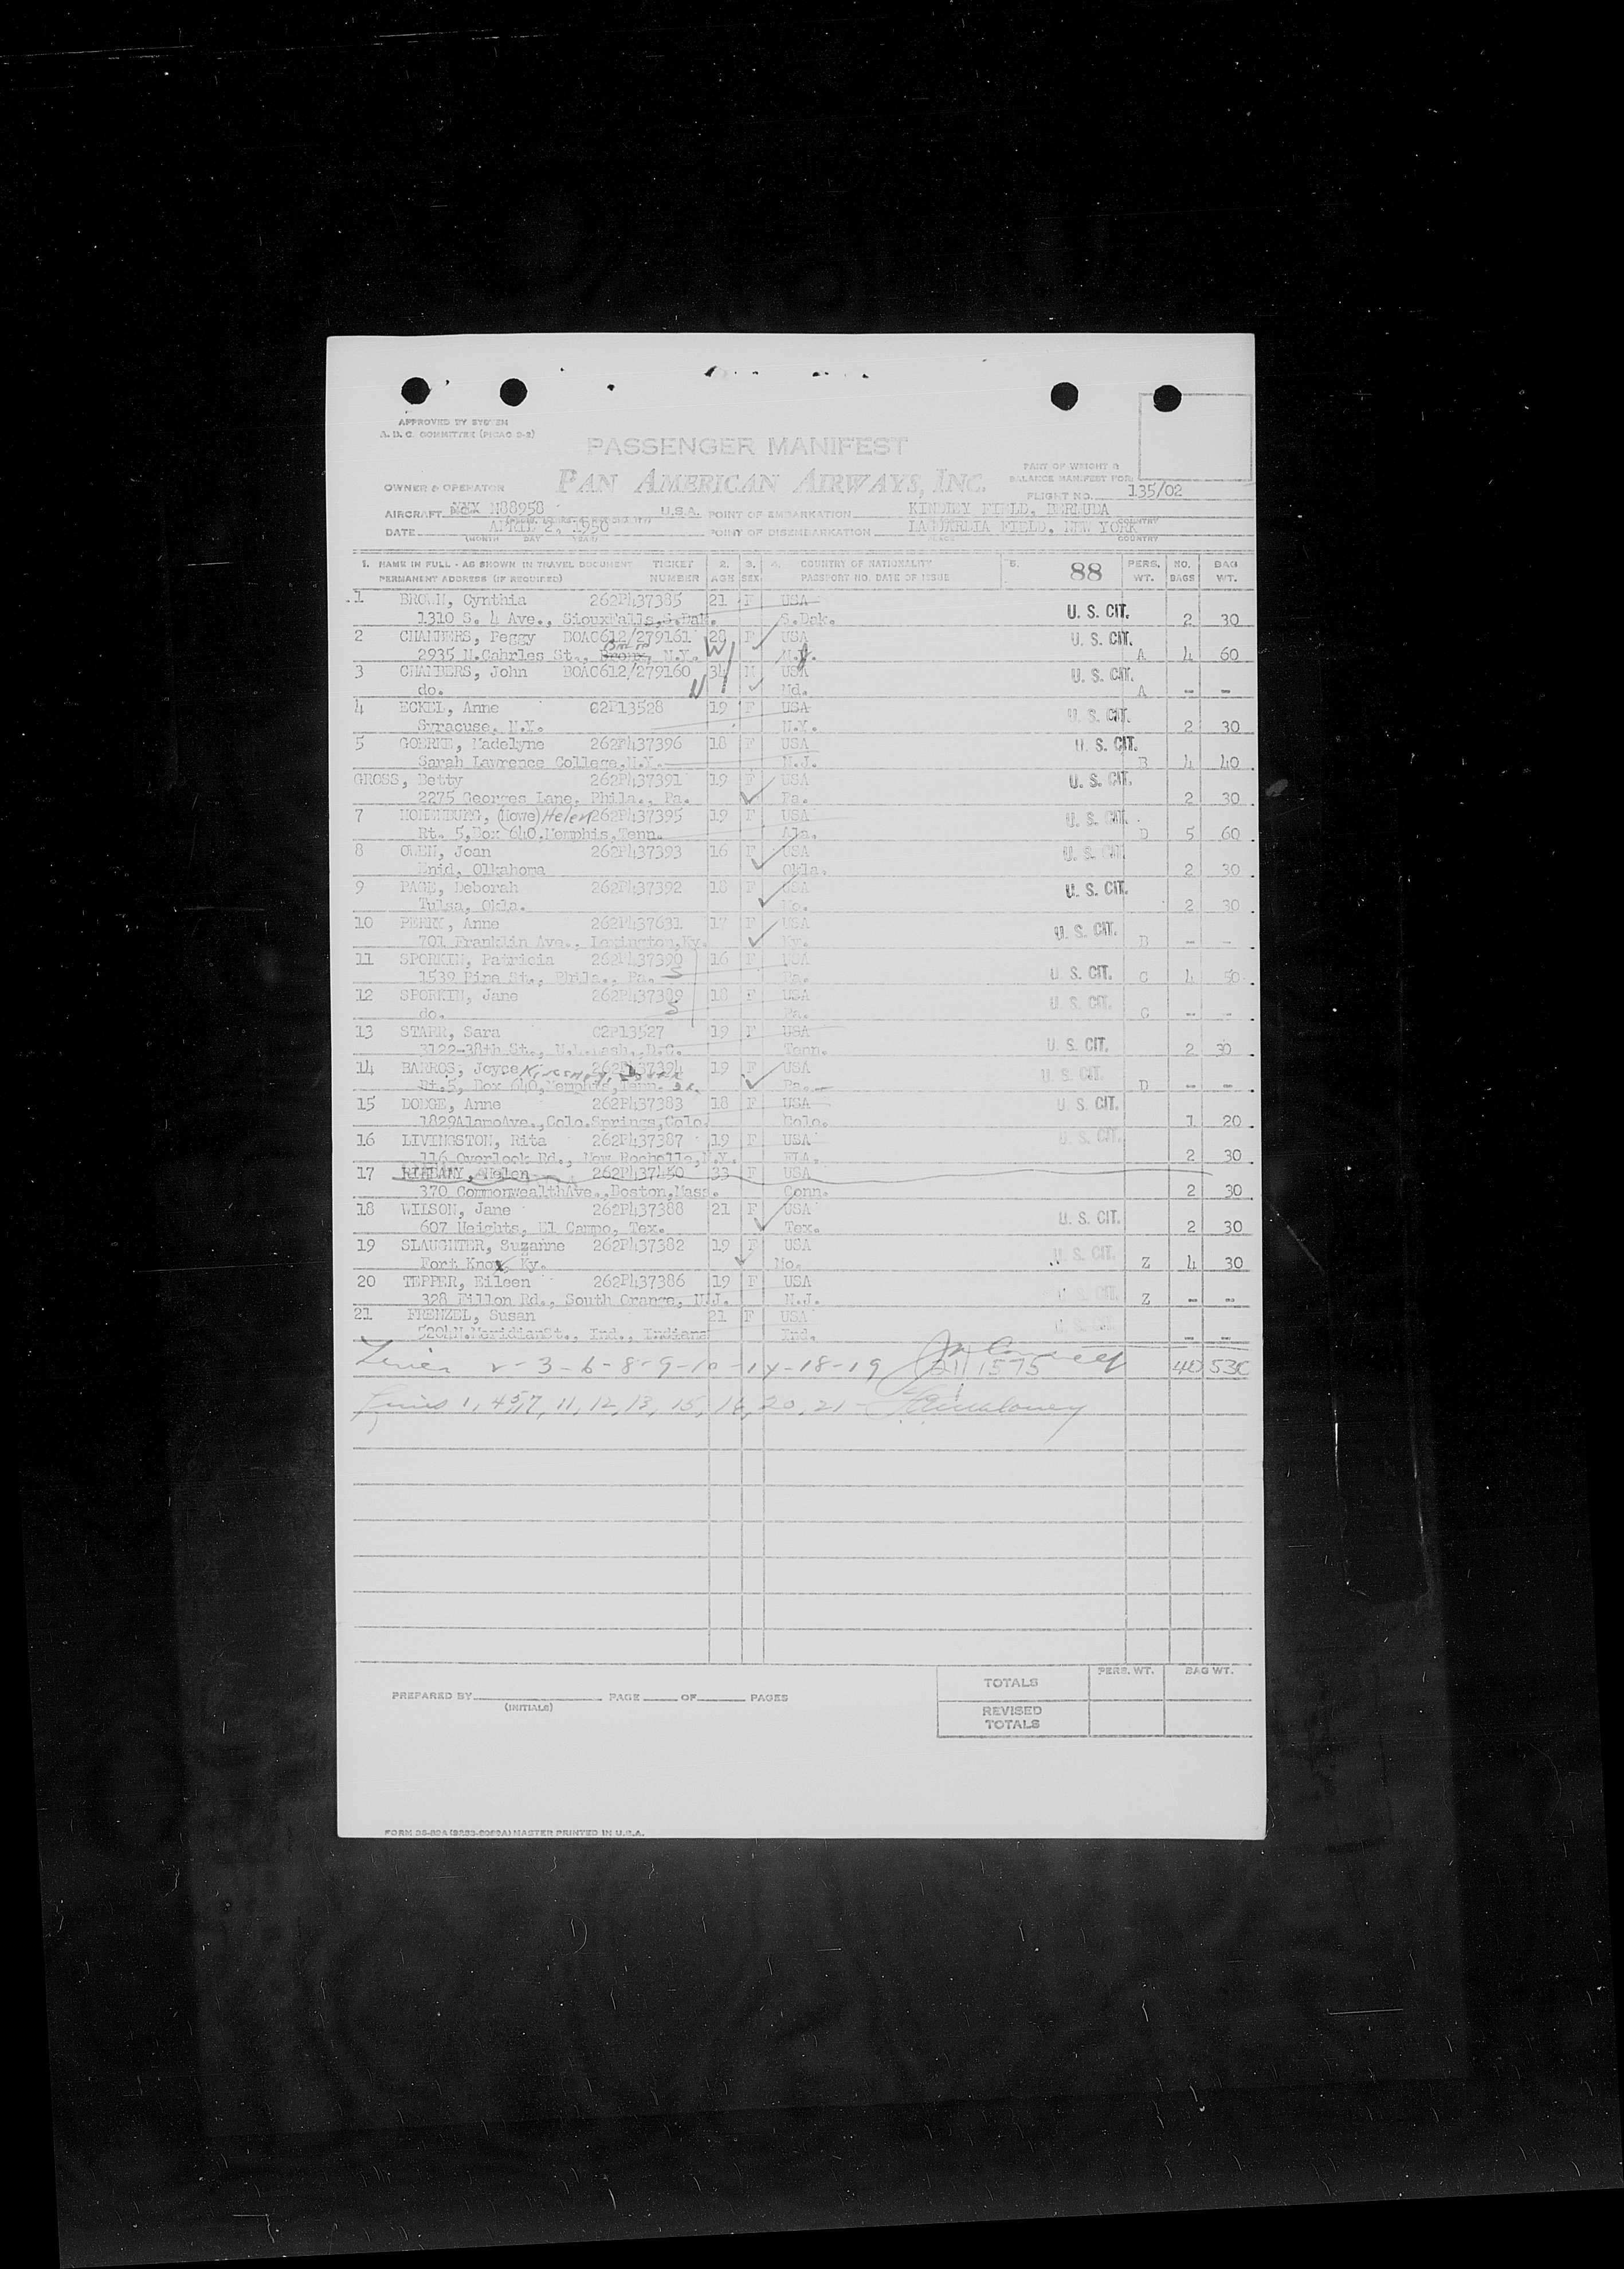 APPROVED BY SYSTEM
A. D. C. COMMITTEE (PICAO D-2)
PASSENGER MANIFEST
PAN AMERICAN AIRWAYS, INC.
PART OF WEIGHT &
BALANCE MANIFEST FOR
OWNER & OPERATOR
FLIGHT NO. 135/02
AIRCRAFT XXX N88958 U.S.A. POINT OF EMBARKATION KINDLEY FIELD, BERMUDA
DATE APRIL 2, 1950 POINT OF DISEMBARKATION LAGUARLIA FIELD, NEW YORK
(MONTH DAY YEAR) PLACE COUNTRY
1. NAME IN FULL - AS SHOWN IN TRAVEL DOCUMENT TICKET 2. 3. 4. COUNTRY OF NATIONALITY 5. 88 PERS. NO. BAG
PERMANENT ADDRESS (IF REQUIRED) NUMBER AGE SEX PASSPORT NO. DATE OF ISSUE WT. BAGS WT.
1 BROWN, Cynthia 262P437385 21 F USA
1310 S. 4 Ave., SiouxFalls, S.Dak. S.Dak. U. S. CIT. 2 30
2 CHAMBERS, Peggy BOAC612/279161 28 F USA U. S. CIT.
2935 N.Cahrles St., Bronx, N.Y. W N.Y. A 4 60
3 CHAMBERS, John BOAC612/279160 34 M USA U. S. CIT.
do. Md. A - -
4 ECKEL, Anne C2P13528 19 F USA U. S. CIT.
Syracuse, N.Y. N.Y. 2 30
5 GOERKE, Madelyne 262P437396 18 F USA U. S. CIT.
Sarah Lawrence College, N.Y. N.J. B 4 40
GROSS, Betty 262P437391 19 F USA U. S. CIT.
2275 Georges Lane, Phila., Pa. Pa. 2 30
7 HOHENBURG, (Howe) Helen 262P437395 19 F USA U. S. CIT.
Rt. 5, Box 640, Memphis, Tenn. Ala. D 5 60
8 OWEN, Joan 262P437393 16 F USA U. S. CIT.
Enid, Olkahoma Okla. 2 30
9 PAGE, Deborah 262P437392 18 F USA U. S. CIT.
Tulsa, Okla. Mo. 2 30
10 PERRY, Anne 262P437631 17 F USA U. S. CIT.
701 Franklin Ave., Lexington, Ky. Ky. B - -
11 SPORKIN, Patricia 262P437390 16 F USA
1539 Pine St., Phila., Pa. Pa. U. S. CIT. C 4 50
12 SPORKIN, Jane 262P437389 18 F USA U. S. CIT.
do. Pa. C - -
13 STARR, Sara C2P13527 19 F USA
3122-38th St., N.W. Wash., D.C. Tenn. U. S. CIT. 2 30
14 BARROS, Joyce 262P437394 19 F USA U. S. CIT.
Rt.5, Box 640, Memphis, Tenn. Pa. D - -
15 DODGE, Anne 262P437383 18 F USA U. S. CIT.
1829AlamoAve., Colo.Springs, Colo. Colo. 1 20
16 LIVINGSTON, Rita 262P437387 19 F USA U. S. CIT.
116 Overlook Rd., New Rochelle, N.Y. FLA. 2 30
17 RIHBANY, Helen 262P437450 33 F USA
370 CommonwealthAve., Boston, Mass. Conn. 2 30
18 WILSON, Jane 262P437388 21 F USA U. S. CIT.
607 Heights, El Campo, Tex. Tex. 2 30
19 SLAUGHTER, Suzanne 262P437382 19 F USA U. S. CIT.
Fort Knox, Ky. Mo. Z 4 30
20 TEPPER, Eileen 262P437386 19 F USA U. S. CIT.
328 Dillon Rd., South Orange, N.J. N.J. Z - -
21 FRENZEL, Susan 21 F USA U. S. CIT.
5204N.MeridianSt., Ind., Indiana Ind. - -
3-6-8-9-10-14-18-19 21 1575 40 530
Lines 1, 4,5,7, 11, 12, 13, 15, 16, 20, 21 -
TOTALS PERS. WT. BAG WT.
PREPARED BY (INITIALS) PAGE OF PAGES
REVISED
TOTALS
MASTER PRINTED IN U.S.A.